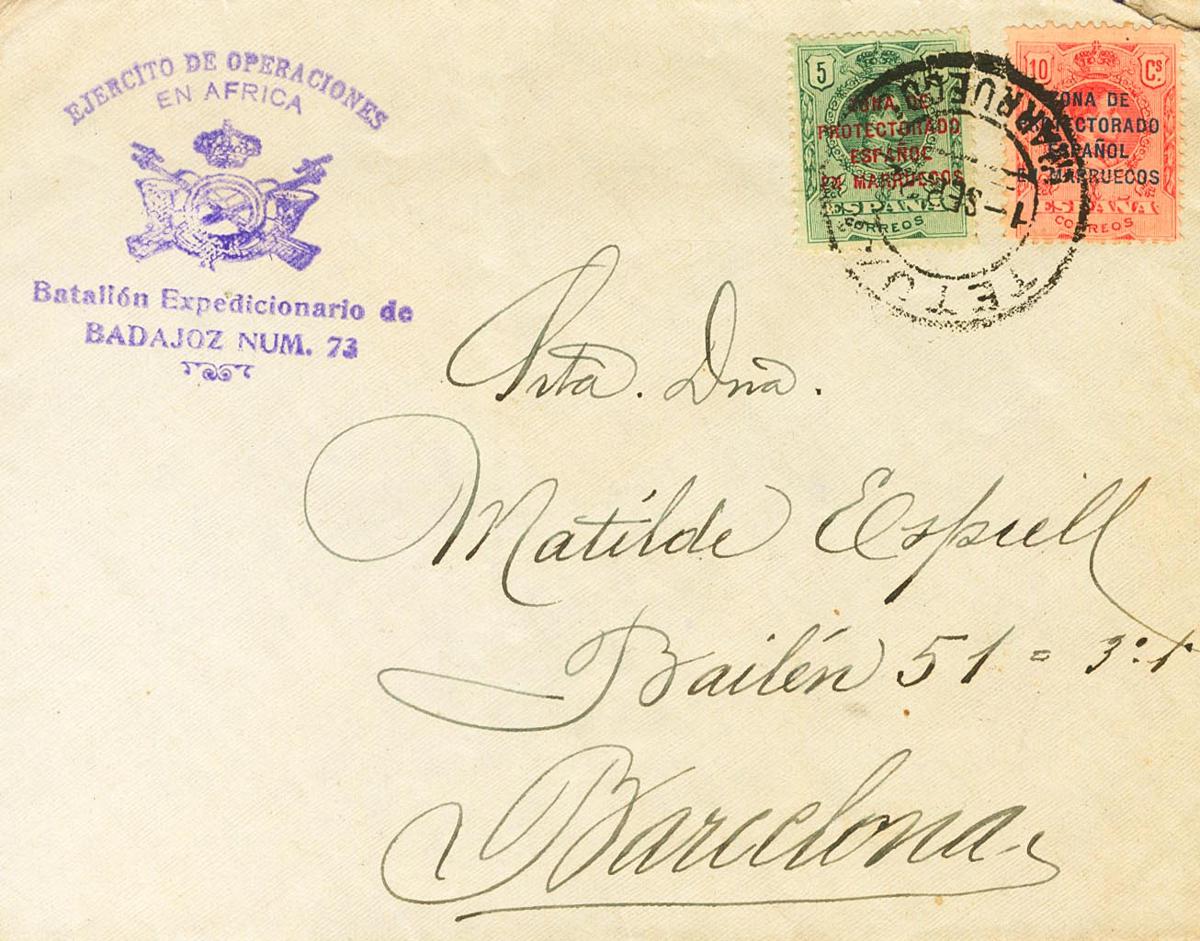 EJERCITO DE OPERACIONES
EN AFRICA
Batallón Expedicionario de
BADAJOZ NUM. 73
5
ZONA DE
PROTECTORADO
ESPAÑOL
EN MARRUECOS
ESPAÑA
CORREOS
10 Cs.
ZONA DE
PROTECTORADO
ESPAÑOL
EN MARRUECOS
ESPAÑA
CORREOS
TETUAN
MARRUECOS
1-SEP
Srta. Dña.
Matilde Espiell
Bailén 51 = 3º 1ª
Barcelona